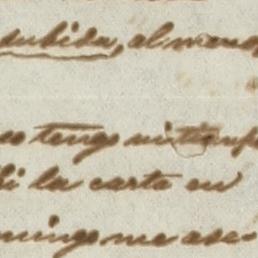 subida, al menos
no tengo ni tiemp
bi la carta en
mingo me ase-